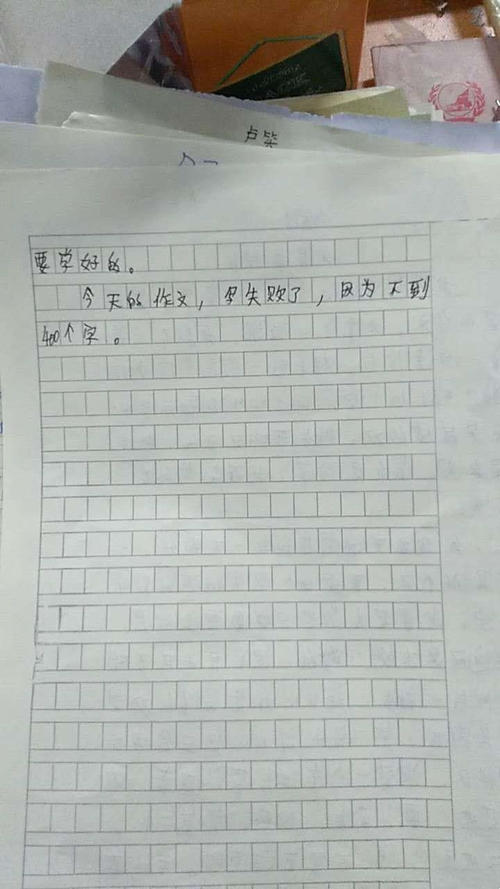 卢毕
要学好的。
今天的作文，又失败了，因为不到
400个字。